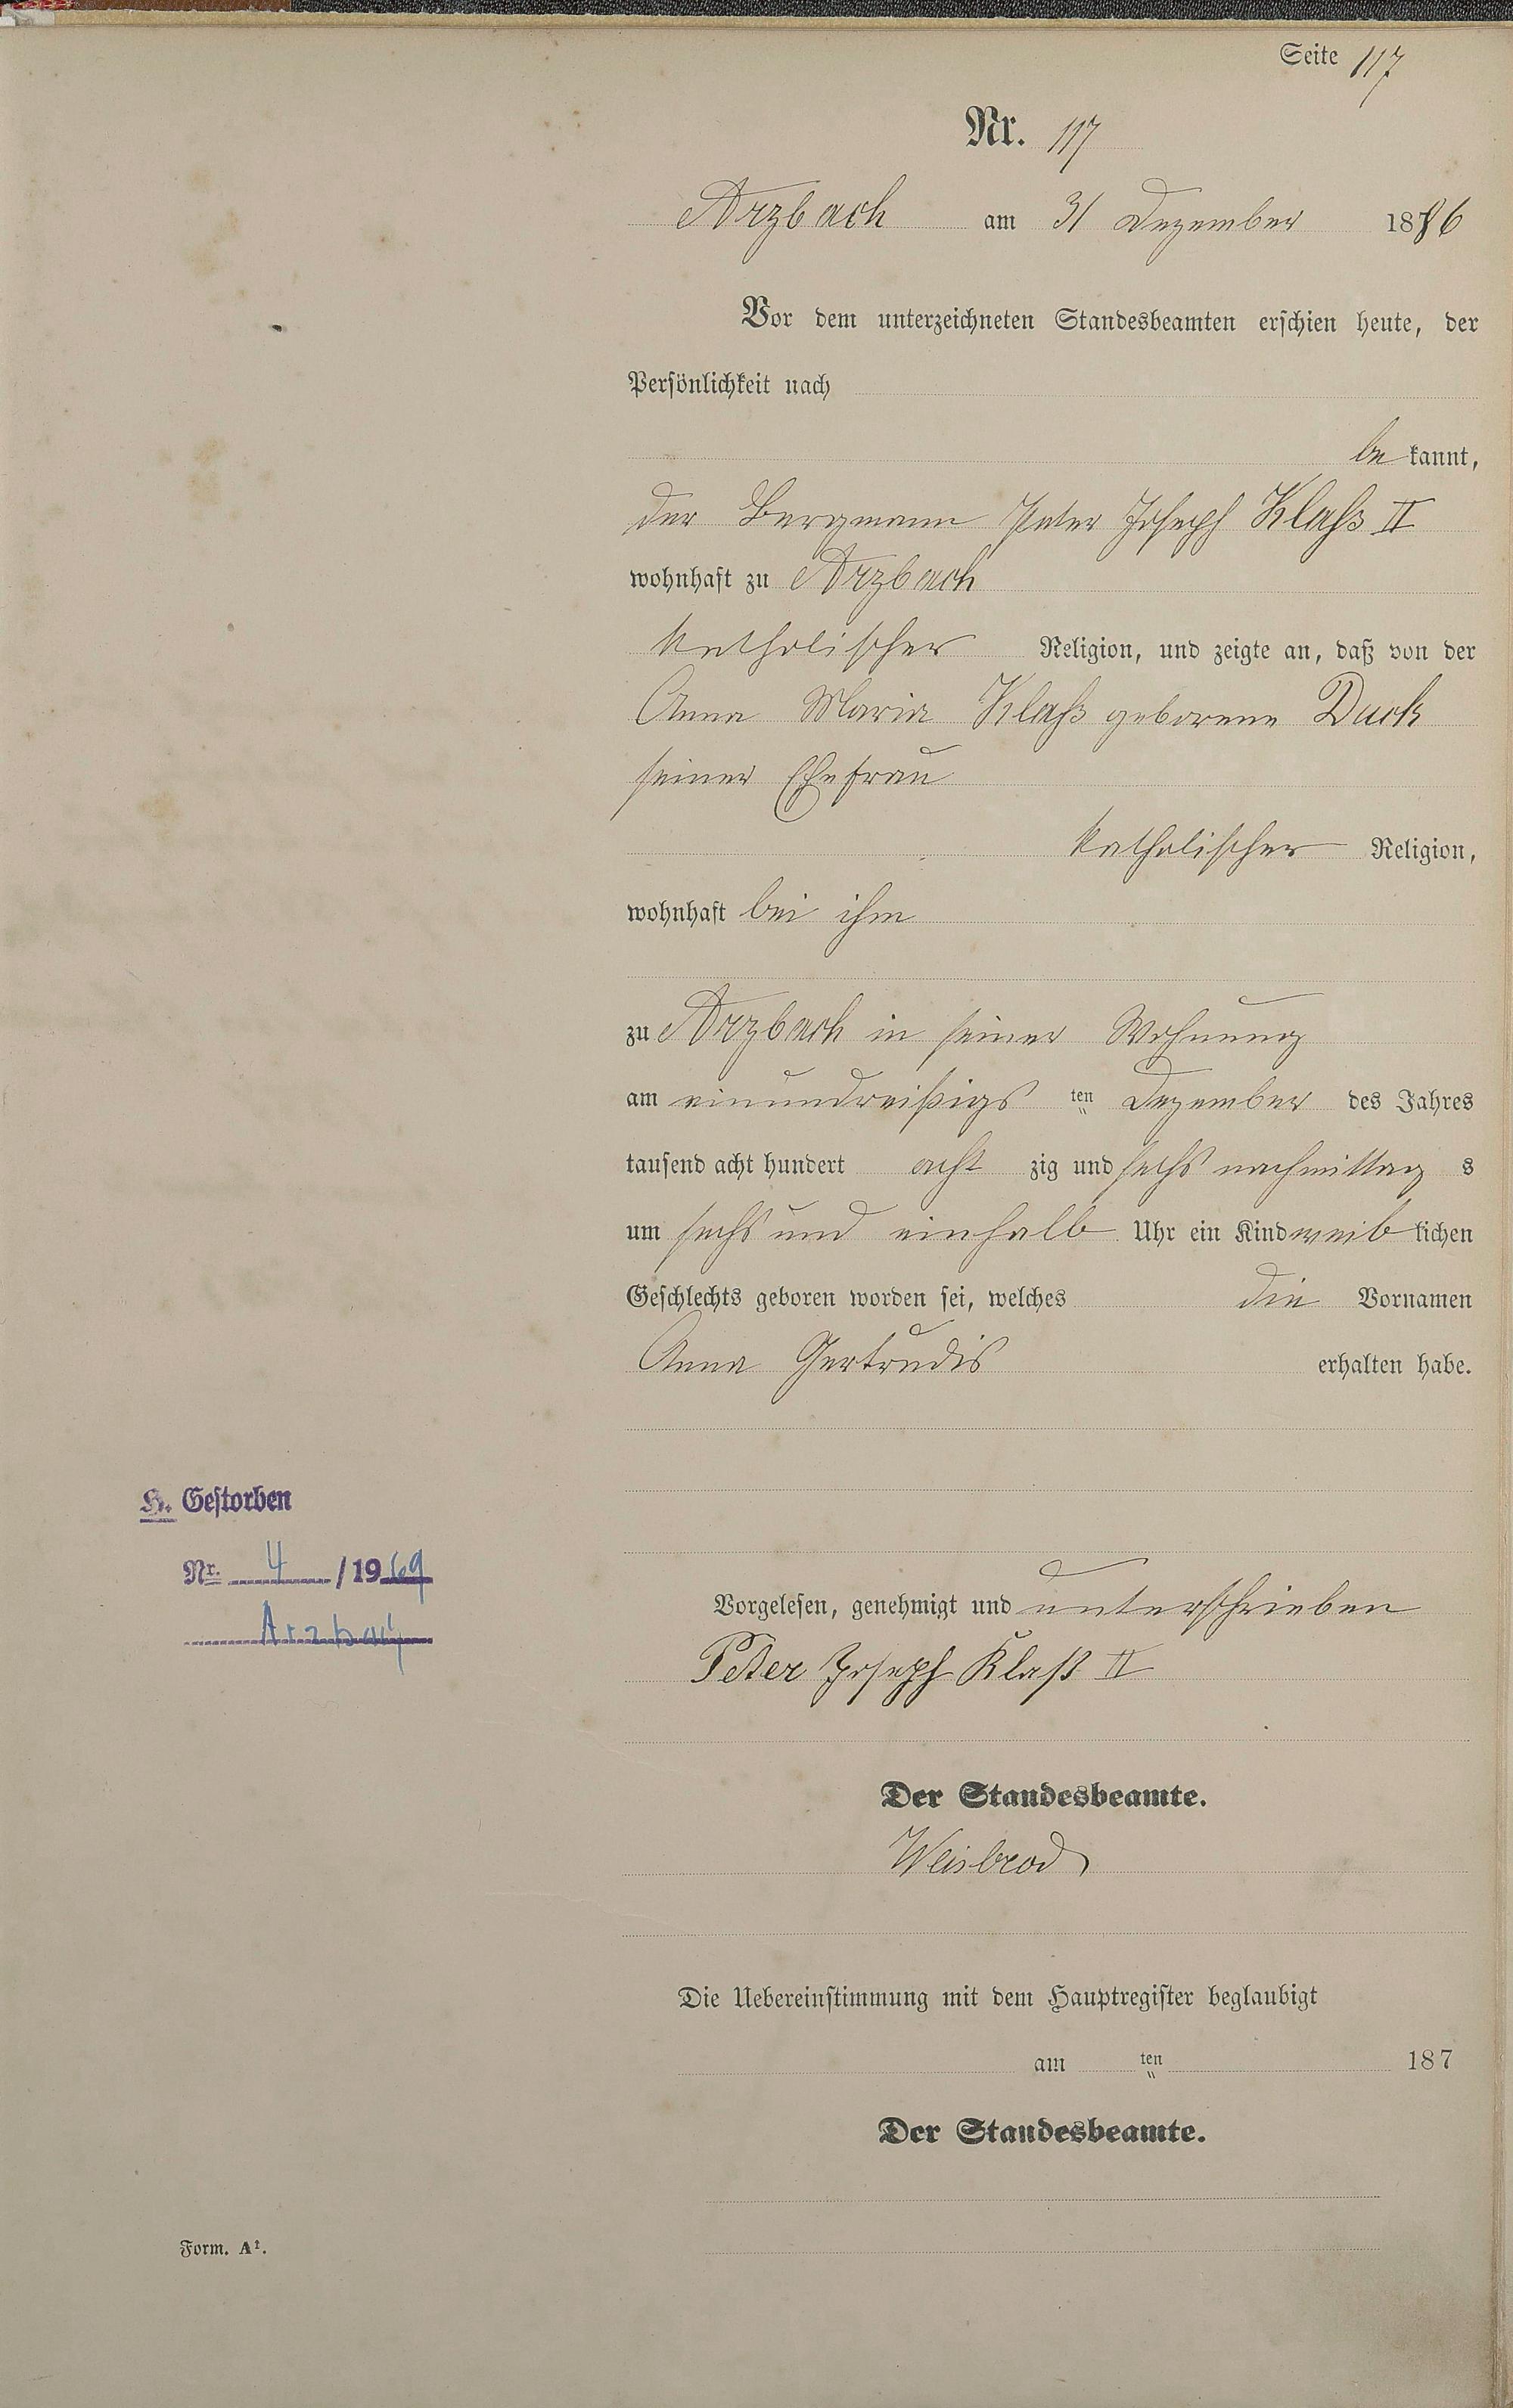 Seite 117
Nr. 117
Arzbach am 31 Dezember 1886
Vor dem unterzeichneten Standesbeamten erschien heute, der
Persönlichkeit nach
be kannt,
der Bergmann Peter Joseph Klaß II
wohnhaft zu Arzbach
katholischer Religion, und zeigte an, daß von der
Anna Maria Klaß geborene Duck
seiner Ehefrau
katholischer Religion,
wohnhaft bei ihm
zu Arzbach in seiner Wohnung
am einundreißigs ten Dezember des Jahres
tausend acht hundert acht zig und sechs nachmittag s
um sechs und einhalb Uhr ein Kind weib lichen
Geschlechts geboren worden sei, welches die Vornamen
Anna Gertrudis erhalten habe.
H. Gestorben
Nr. 4 / 1969
Arzbach
Vorgelesen, genehmigt und unterschrieben
Peter Joseph Klaß II
Der Standesbeamte.
Weisbrod
Die Uebereinstimmung mit dem Hauptregister beglaubigt
am ten 187
Der Standesbeamte.
Form. A².